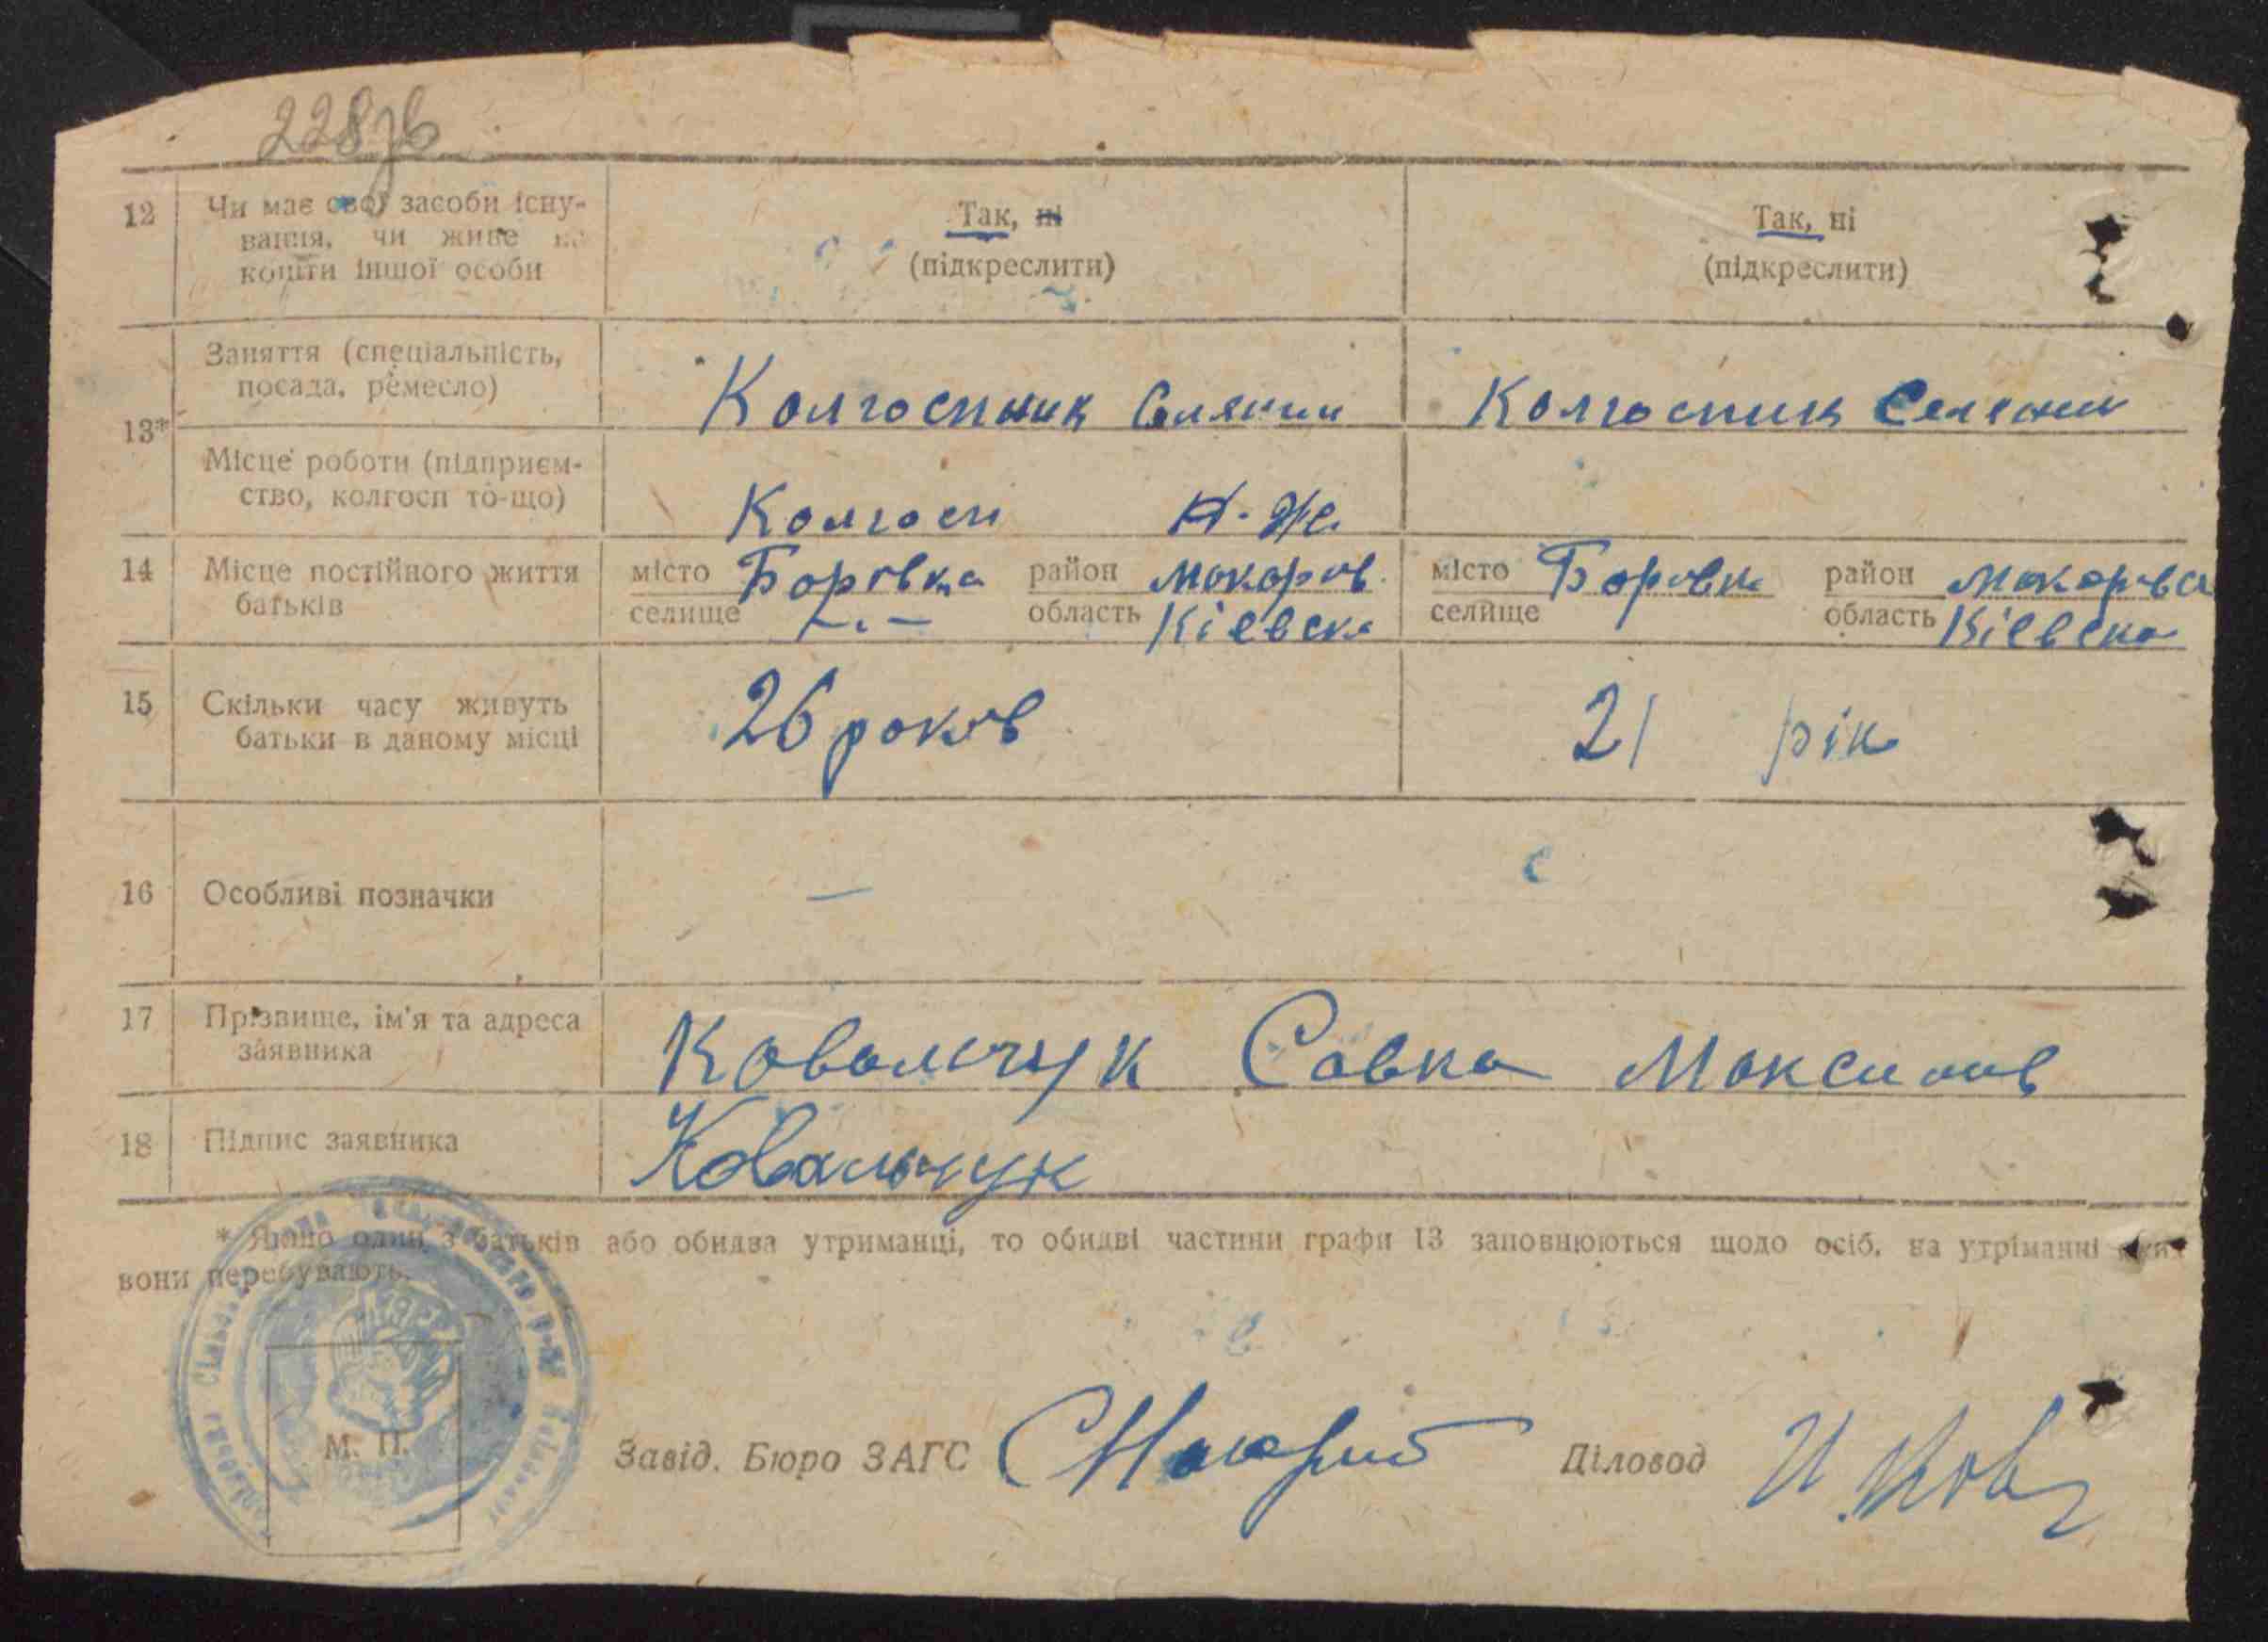 228зв
12 Чи має свої засоби існу- Так, ні Так, ні
вання, чи живе на (підкреслити) (підкреслити)
кошти іншої особи
Заняття (спеціальність,
посада, ремесло) Колгоспник Селянин Колгоспник Селянин
13*
Місце роботи (підприєм-
ство, колгосп то-що) Колгосп
14 Місце постійного життя місто Боровка район Макаров. місто Боровка район Макаровск
батьків селище -„- область Кіевска селище область Кіевска
15 Скільки часу живуть 26 років 21 рік
батьки в даному місці
16 Особливі позначки —
17 Прізвище, ім'я та адреса Ковальчук Савка Максимов
заявника
18 Підпис заявника Ковальчук
* Якщо один з батьків або обидва утриманці, то обидві частини графи 13 заповнюються щодо осіб, на утріманні яких
вони перебувають.
М. П.
Завід. Бюро ЗАГС Діловод